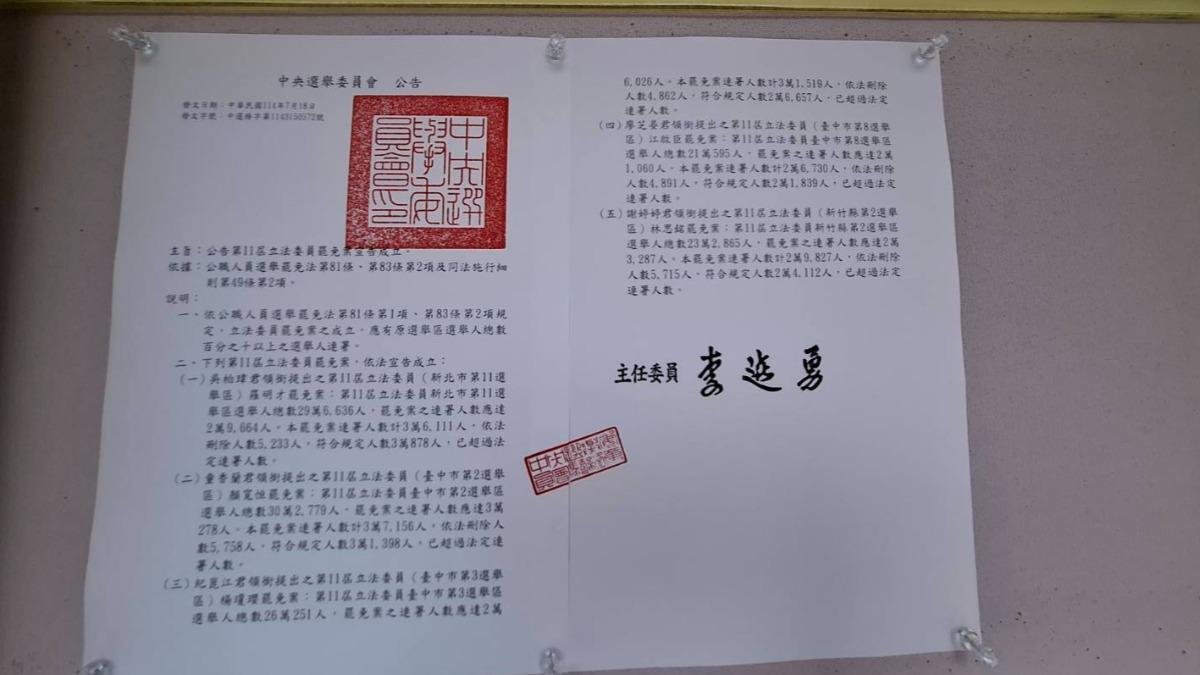 中央選舉委員會　公告
發文日期：中華民國114年7月18日
發文字號：中選務字第1143150572號
中央選舉委員會印
主旨：公告第11屆立法委員罷免案宣告成立。
依據：公職人員選舉罷免法第81條、第83條第2項及同法施行細
則第49條第2項。
說明：
一、依公職人員選舉罷免法第81條第1項、第83條第2項規
定，立法委員罷免案之成立，應有原選舉區選舉人總數
百分之十以上之選舉人連署。
二、下列第11屆立法委員罷免案，依法宣告成立：
(一)吳柏瑋君領銜提出之第11屆立法委員（新北市第11選
舉區）羅明才罷免案：第11屆立法委員新北市第11選
舉區選舉人總數29萬6,636人，罷免案之連署人數應達
2萬9,664人。本罷免案連署人數計3萬6,111人，依法
刪除人數5,233人，符合規定人數3萬878人，已超過法
定連署人數。
(二)童香蘭君領銜提出之第11屆立法委員（臺中市第2選舉
區）顏寬恒罷免案：第11屆立法委員臺中市第2選舉區
選舉人總數30萬2,779人，罷免案之連署人數應達3萬
278人。本罷免案連署人數計3萬7,156人，依法刪除人
數5,758人，符合規定人數3萬1,398人，已超過法定連
署人數。
(三)紀崑江君領銜提出之第11屆立法委員（臺中市第3選舉
區）楊瓊瓔罷免案：第11屆立法委員臺中市第3選舉區
選舉人總數26萬251人，罷免案之連署人數應達2萬
6,026人。本罷免案連署人數計3萬1,519人，依法刪除
人數4,862人，符合規定人數2萬6,657人，已超過法定
連署人數。
(四)廖芝晏君領銜提出之第11屆立法委員（臺中市第8選舉
區）江啟臣罷免案：第11屆立法委員臺中市第8選舉區
選舉人總數21萬595人，罷免案之連署人數應達2萬
1,060人。本罷免案連署人數計2萬6,730人，依法刪除
人數4,891人，符合規定人數2萬1,839人，已超過法定
連署人數。
(五)謝婷婷君領銜提出之第11屆立法委員（新竹縣第2選舉
區）林思銘罷免案：第11屆立法委員新竹縣第2選舉區
選舉人總數23萬2,865人，罷免案之連署人數應達2萬
3,287人。本罷免案連署人數計2萬9,827人，依法刪除
人數5,715人，符合規定人數2萬4,112人，已超過法定
連署人數。
主任委員　李進勇